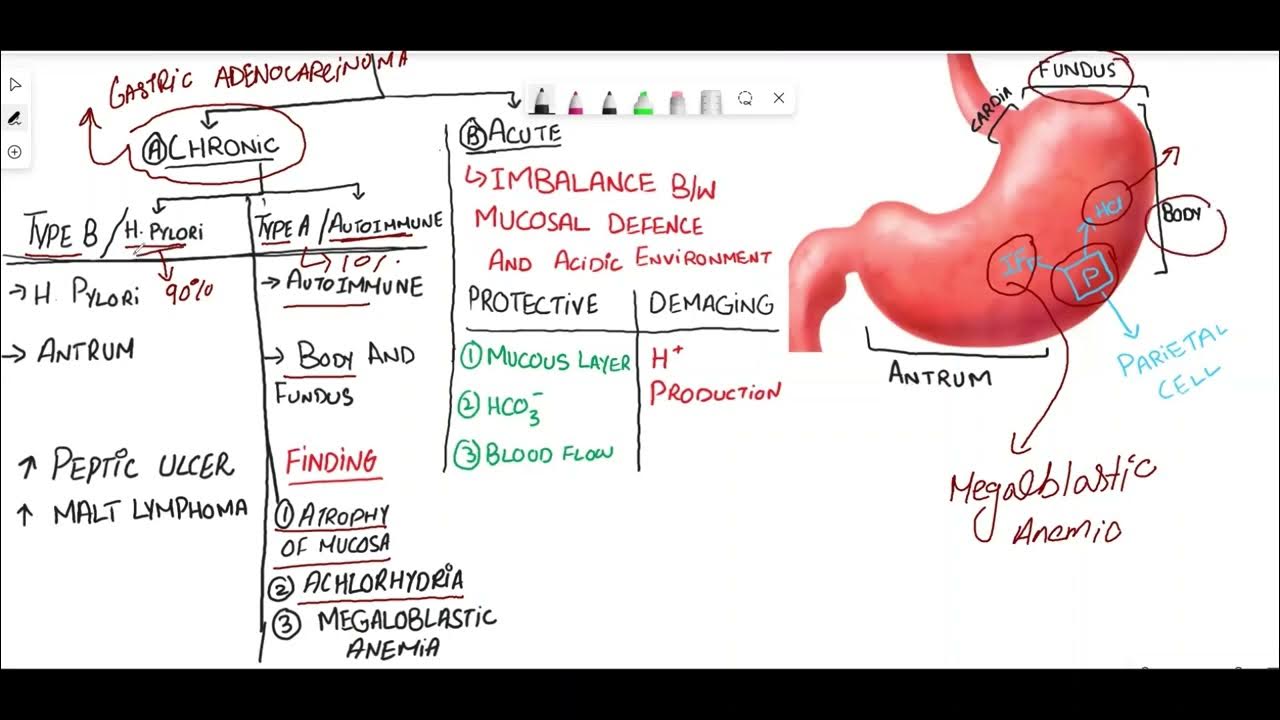 GASTRIC ADENOCARCINOMA
Ⓐ CHRONIC
TYPE B / H. PYLORI
90%
→ H. PYLORI
→ ANTRUM
↑ PEPTIC ULCER
↑ MALT LYMPHOMA
TYPE A / AUTOIMMUNE
10%
→ AUTOIMMUNE
→ BODY AND
FUNDUS
FINDING
① ATROPHY
OF MUCOSA
② ACHLORHYDRIA
③ MEGALOBLASTIC
ANEMIA
Ⓑ ACUTE
↳ IMBALANCE B/W
MUCOSAL DEFENCE
AND ACIDIC ENVIRONMENT
PROTECTIVE
① MUCOUS LAYER
② HCO₃⁻
③ BLOOD FLOW
DEMAGING
H⁺
PRODUCTION
FUNDUS
CARDIA
BODY
HCl
IF
P
PARIETAL
CELL
ANTRUM
Megalblastic
Anemia